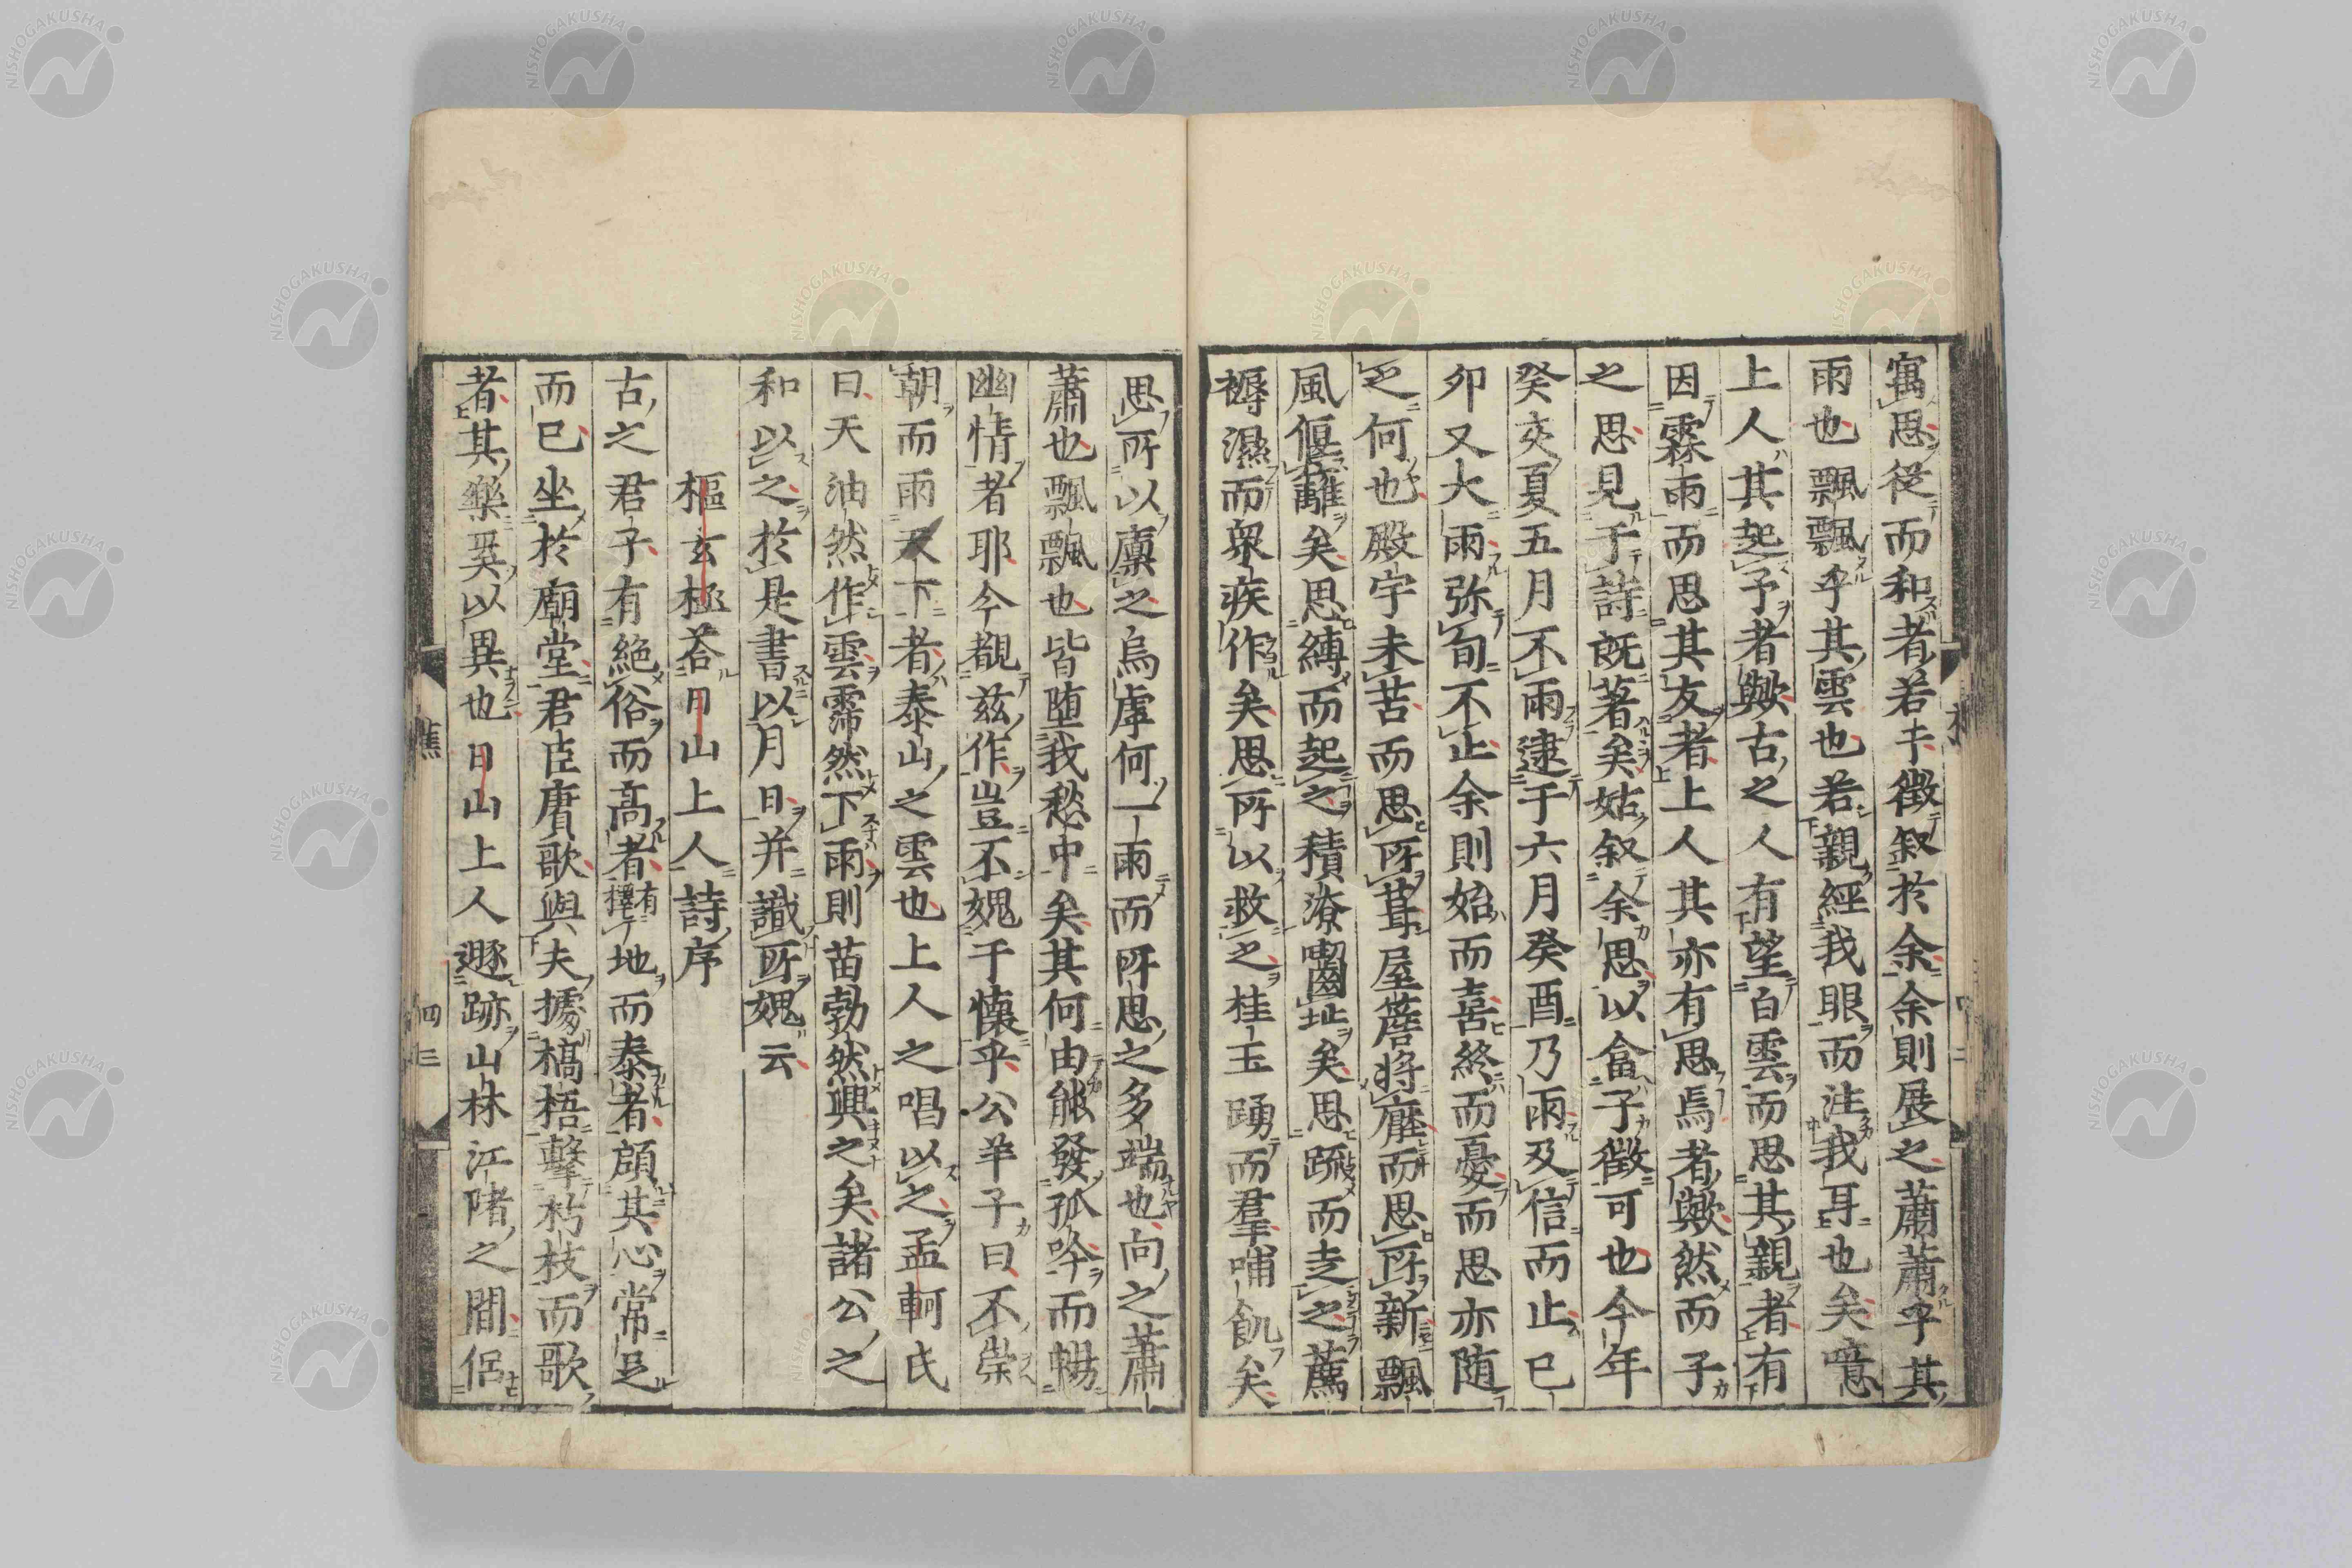 寓思從而和者若干徵叙於余余則展之蕭蕭乎其
雨也飄飄乎其雲也若親經我眼而注我耳也矣噫
上人其起予者歟古之人有望白雲而思其親者有
因霖雨而思其友者上人其亦有思焉者歟然而子
之思見于詩既著矣姑叙余思以畣子徵可也今年
癸亥夏五月不雨逮于六月癸酉乃雨及信而止已
卯又大雨弥旬不止余則始而喜終而憂而思亦随
之何也殿宇未苫而思所葺屋簷將壓而思所新飄
風偃蘺矣思縛而起之積潦囓址矣思疏而走之薦
褥濕而衆疾作矣思所以救之桂玉踴而羣哺飢矣
思所以廩之烏虖何一雨而所思之多端也向之蕭
蕭也飄飄也皆堕我愁中矣其何由能發孤吟而暢
幽情者耶今覩茲作豈不媿于懷乎公羊子曰不崇
朝而雨天下者泰山之雲也上人之唱以之孟軻氏
曰天油然作雲霈然下雨則苗勃然興之矣諸公之
和以之於是書以月日并識所媿云
樞玄極荅日山上人詩序
古之君子有絶俗而高者有擇乎地而泰者頋其心常足
而已坐於廟堂君臣賡歌與夫據槁梧擊朽枝而歌
者其樂奚以異也日山上人遯跡山林江渚之間侶
四三